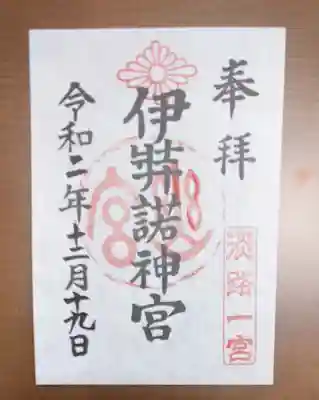 奉拝
淡路一宮
伊弉諾神宮
令和二年十二月十九日